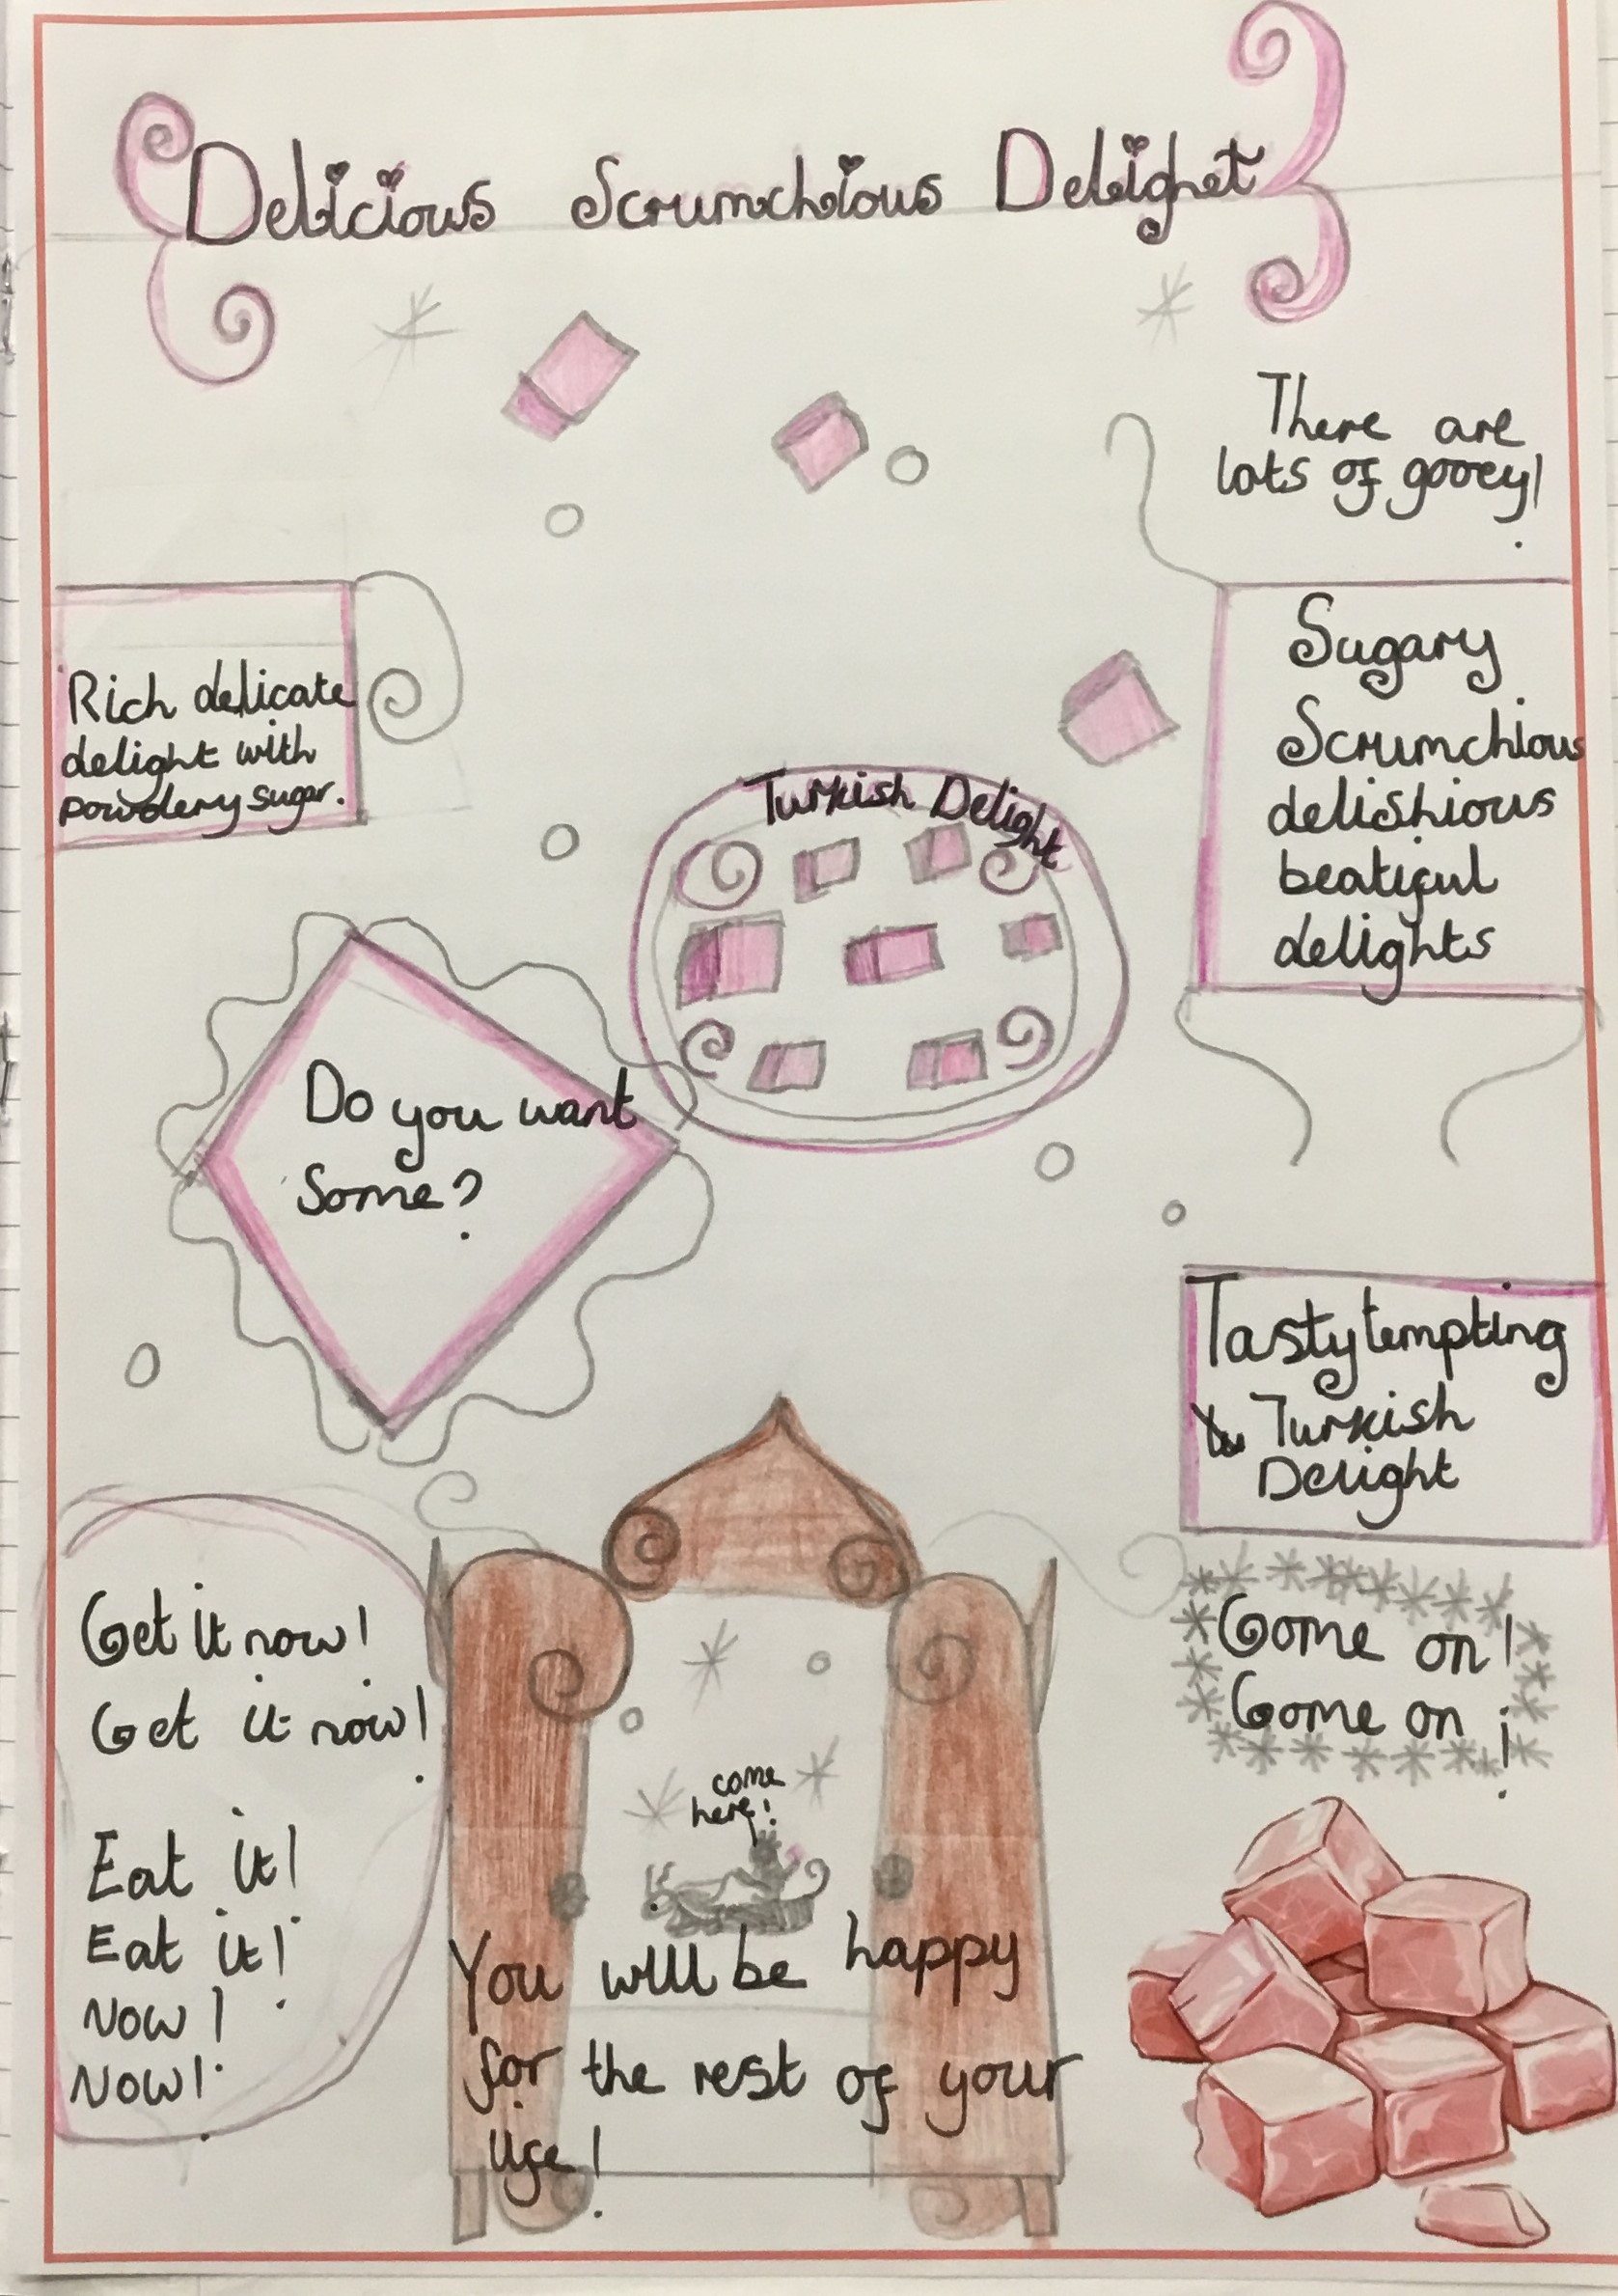 Delicious Scrumchious Delighet
There are
lots of gooey!
Rich delicate
delight with
powdery sugar.
Sugary
Scrumchious
delishious
beatiful
delights
Turkish Delight
Do you want
Some?
Tasty tempting
Turkish
Delight
Get it now!
Get it now!
Eat it!
Eat it!
Now!
Now!
Come on!
Come on!
come
here!
You will be happy
for the rest of your
life!